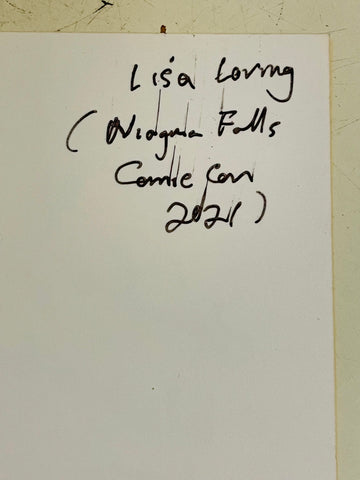 Lisa Loring
(Niagara Falls
Comic Con
2021)